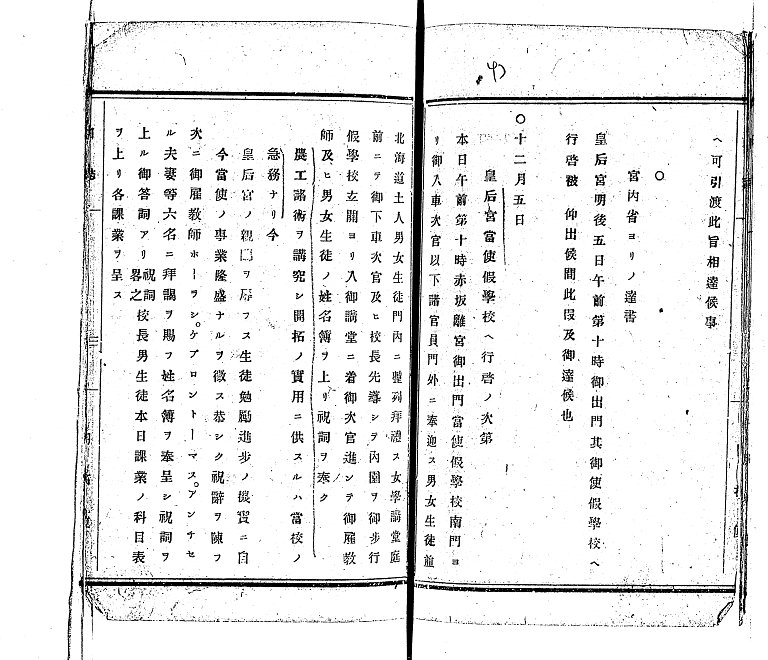 ヘ可引渡此旨相達候事
○
宮內省ヨリノ達書
皇后宮明後五日午前第十時御出門其御使假學校ヘ
行啓被 仰出候間此段及御達候也
○十二月五日
皇后宮當使假學校ヘ行啓ノ次第
本日午前第十時赤坂離宮御出門當使假學校南門ヨ
リ御入車次官以下諸官員門外ニ奉迎ス男女生徒並
北海道土人男女生徒門內ニ整列拜禮ス女學講堂庭
前ニテ御下車次官及ヒ校長先導シテ內園ヲ御步行
假學校玄關ヨリ入御講堂ニ着御次官進ンテ御雇敎
師及ヒ男女生徒ノ姓名簿ヲ上リ祝詞ヲ奉ク
農工諸術ヲ講究シ開拓ノ實用ニ供スルハ當校ノ
急務ナリ今
皇后宮ノ親臨ヲ ス生徒勉勵進步ノ ニ自
今當使ノ事業隆盛ナルヲ徵ス恭シク祝辭ヲ陳フ
次ニ御雇敎師ホーラシ。ケプロントーマス。アンチセ
ル夫妻等六名ニ拜謁ヲ賜フ姓名簿ヲ奉呈シ祝詞ヲ
上ル御答詞アリ祝詞畧之校長男生徒本日課業ノ科目表
ヲ上リ各課業ヲ呈ス